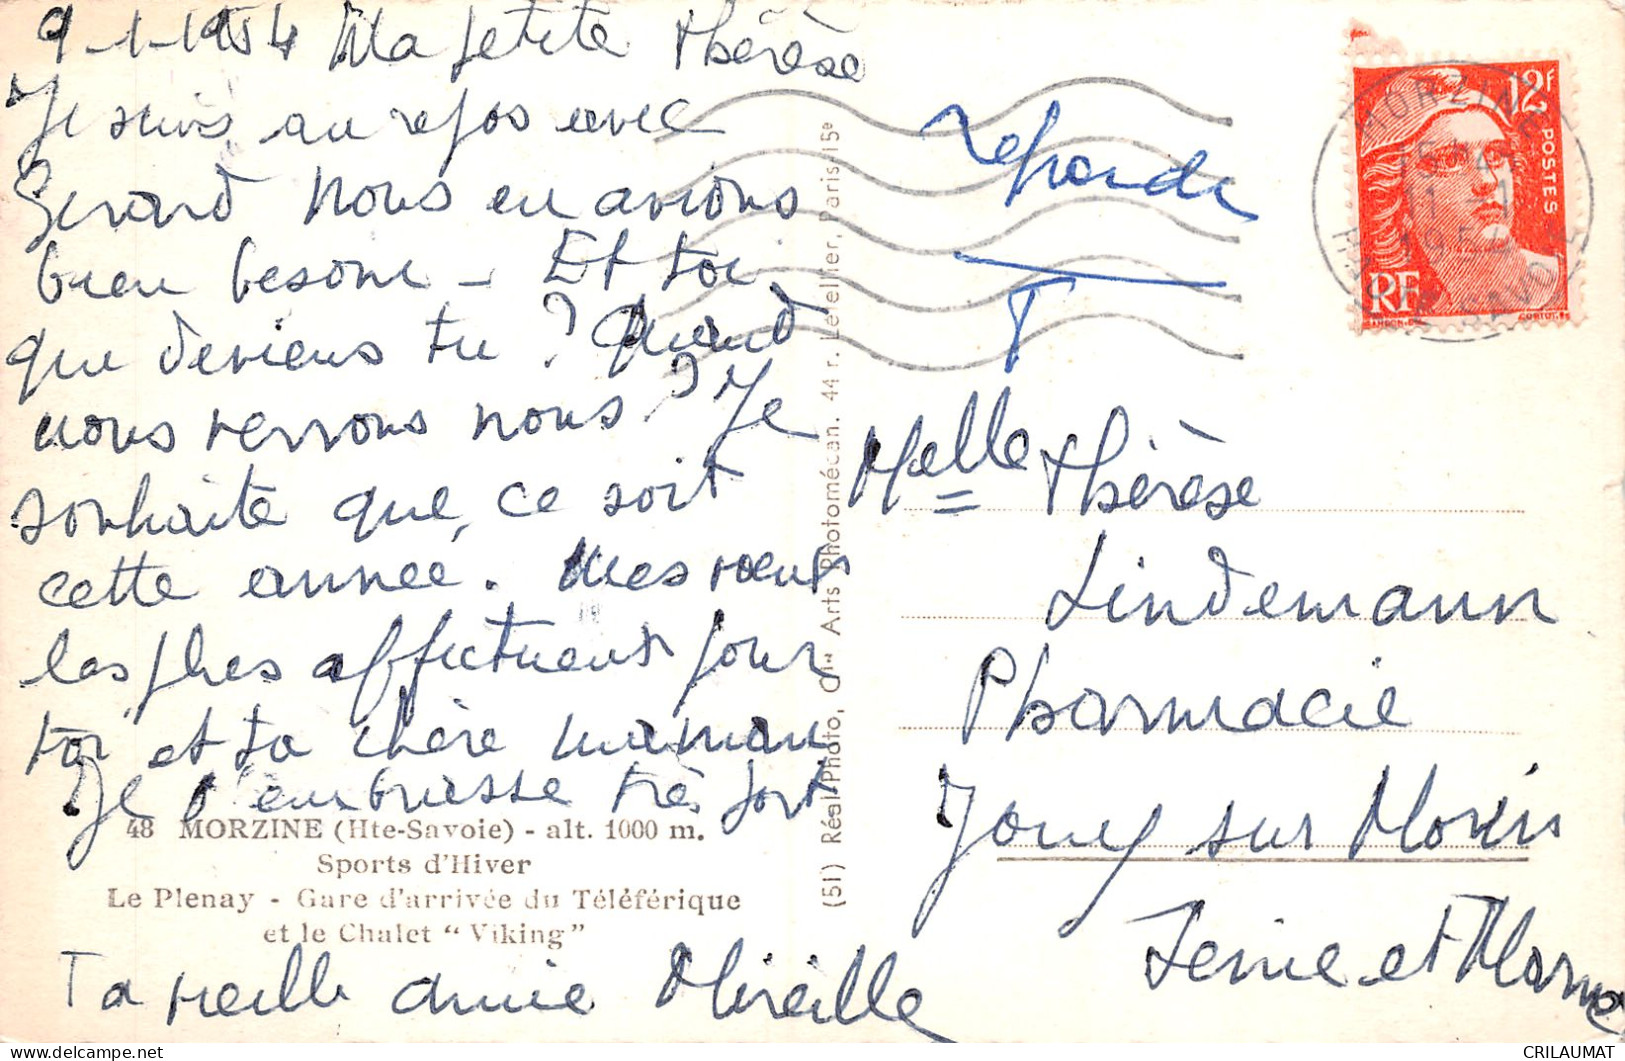 9-1-1954 Ma petite Thérèse
Je suis au repos avec
Gérard Nous en avions
bien besoin - Et toi
que deviens tu ? Quand
nous verrons nous ? Je
souhaite que ce soit
cette année. Mes voeux
les plus affectueux pour
toi et ta chère maman
Je t'embrasse très fort
48 MORZINE (Hte-Savoie) - alt. 1000 m.
Sports d'Hiver
Le Plenay - Gare d'arrivée du Téléférique
et le Chalet “ Viking”
Ta vieille amie Mireille
(51) Réal-Photo, Cie des Arts Photomécan. 44 r. Letellier, Paris 15e
12F
POSTES
RF
GANDON
CORTOT
MORZINE
15H
11-1
195
HTE SAVOIE
T
Melle Thérèse
Lindemann
Pharmacie
Jouy sur Morin
Seine et Marne
CRILAUMAT